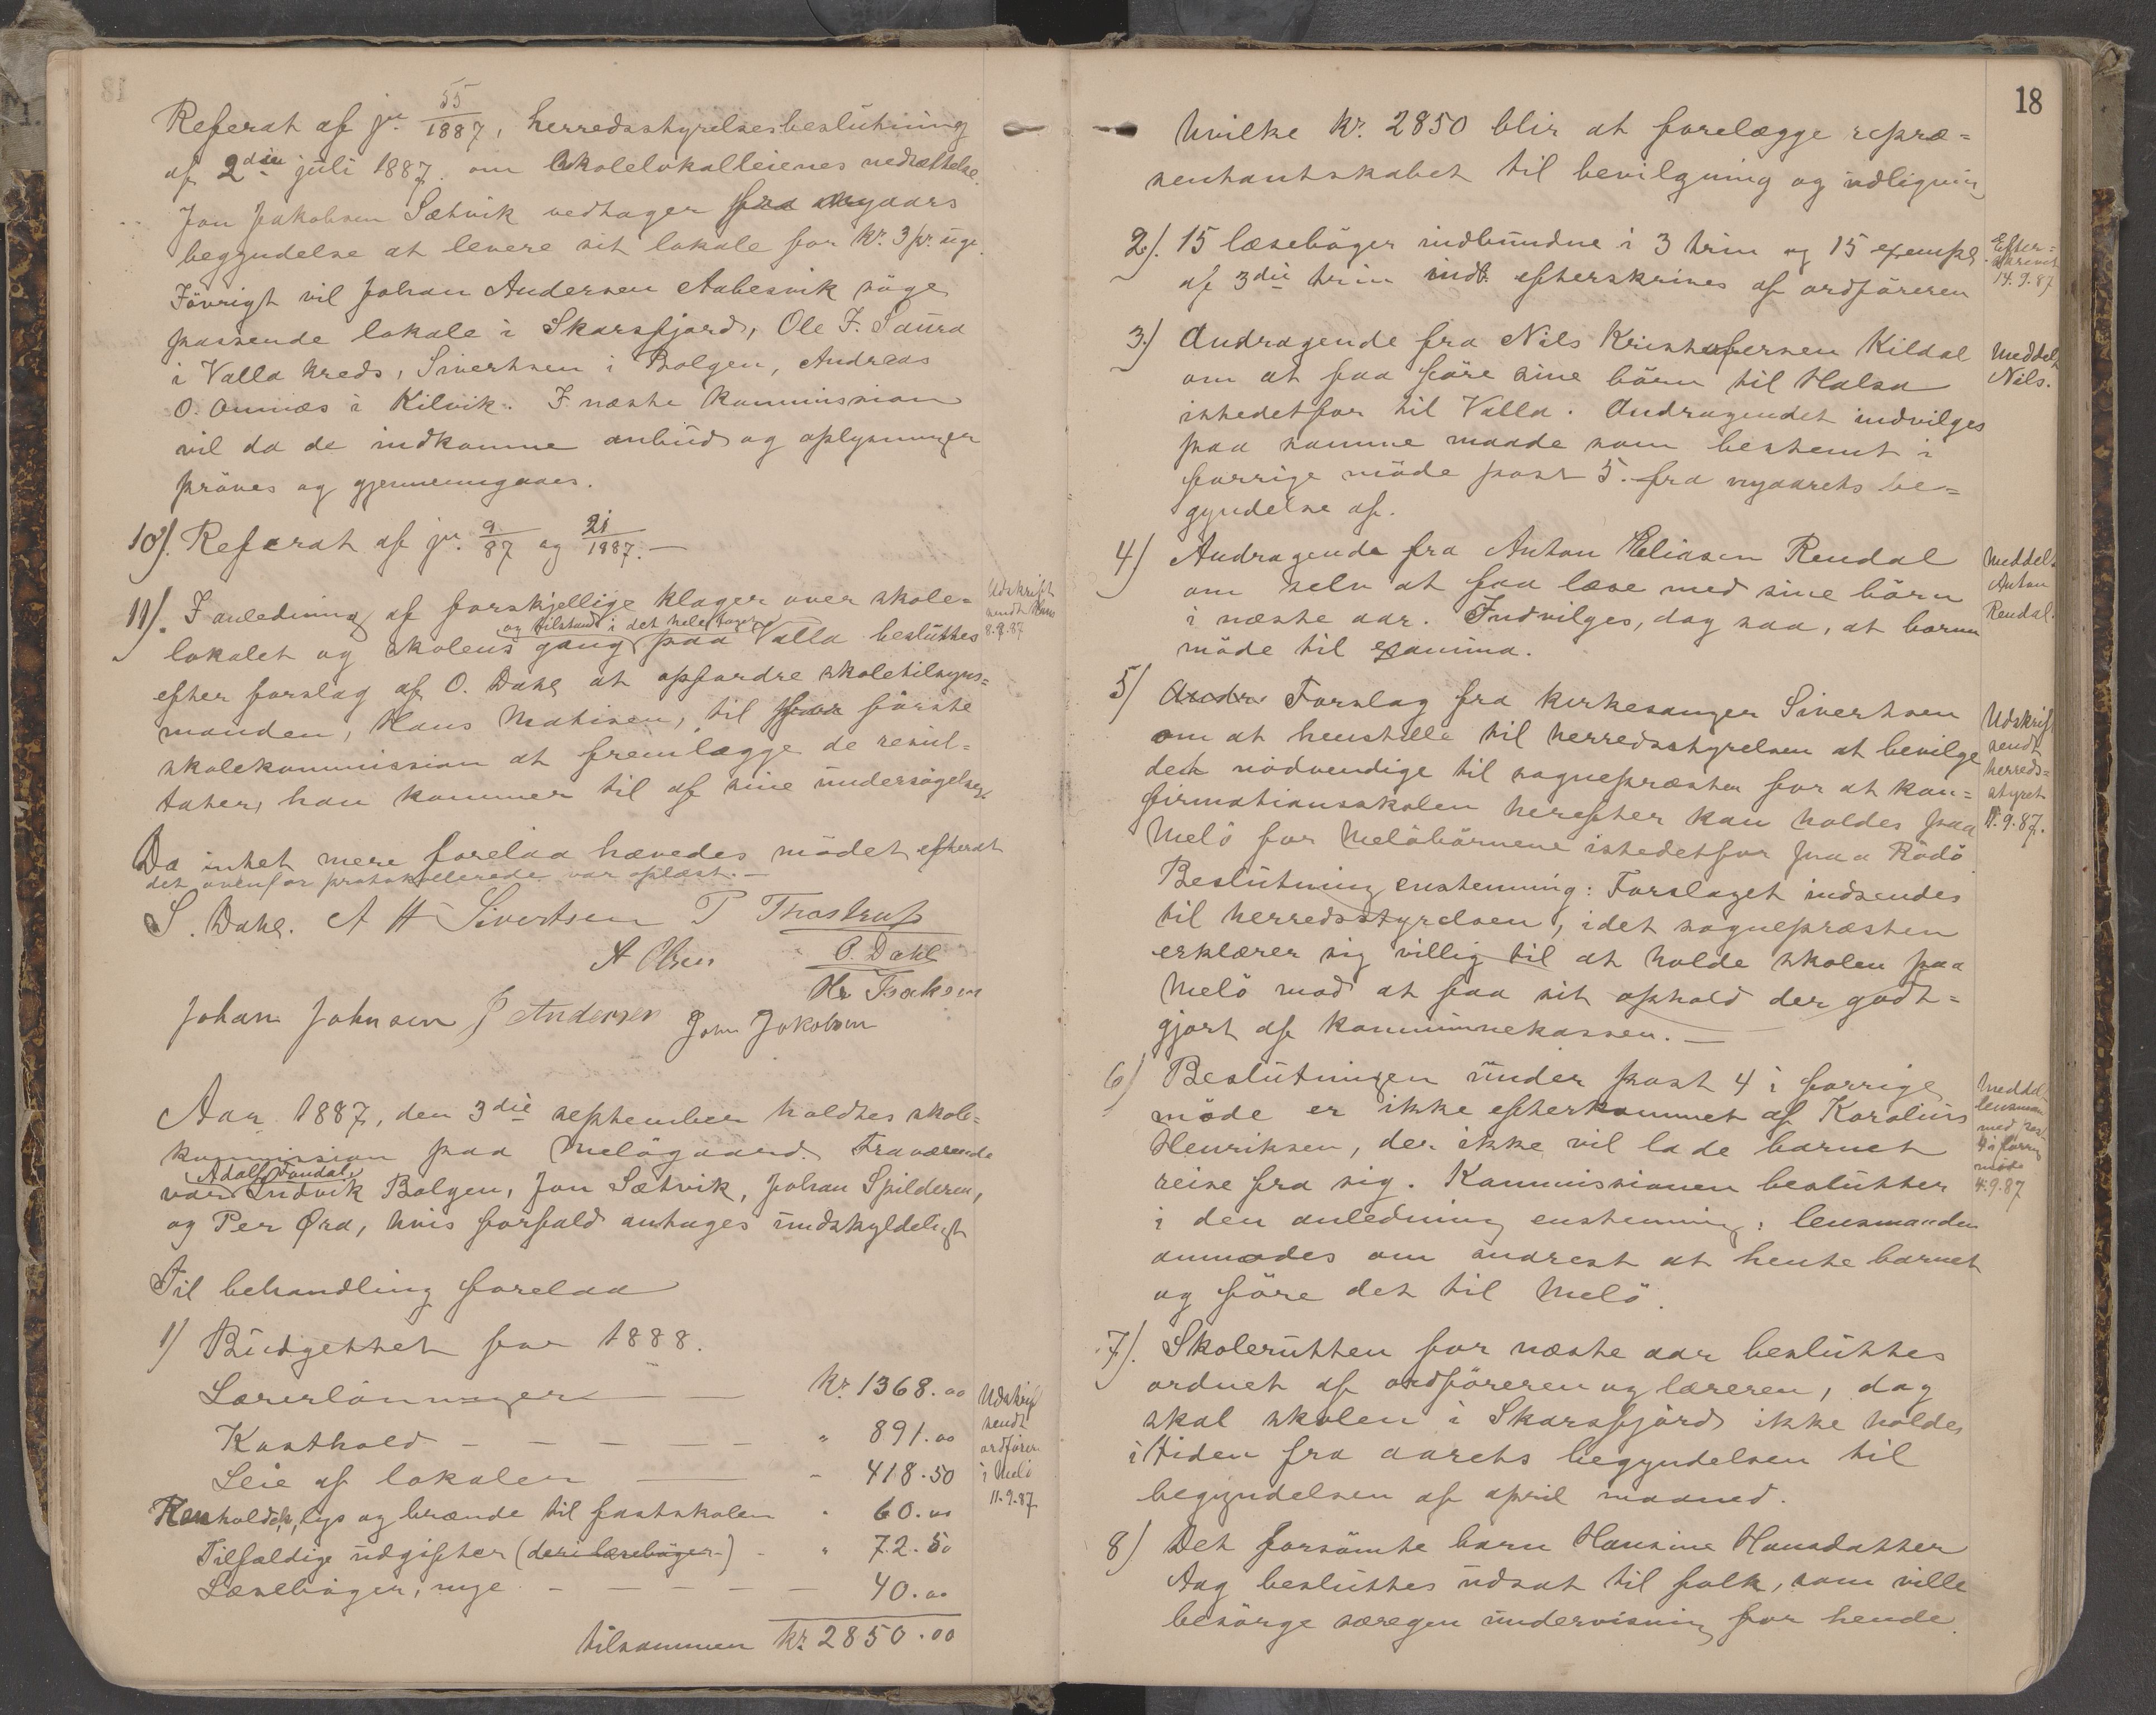 Referat af jn. 55/1887, herredsstyrelsesbeslutning
af 2den juli 1887 om skolelokalleienes nedsættelse.
Jon Jakobsen Sætvik vedtager fra nyaars
begyndelse at levere sit lokale for kr. 3 pr. uge.
Iövrigt vil Johan Andersen Aabesvik söge
passende lokale i Skarsfjord, Ole J. Saura
i Valla kreds, Sivertsen i Bolgen, Andreas
O. Omnæs i Kilvik. I næste kommission
vil da de indkomne anbud og oplysninger
pröves og gjennemgaaes.
10). Referat af jn. 9/87 og 21/1887.
11). I anledning af forskjellige klager over skole-
lokalet og skolens gang og tilstand i det hele taget paa Valla besluttes
efter forslag af O. Dahl at opfordre skoletilsyns-
manden, Hans Matisen, til förste
skolekommission at fremlægge de resul-
tater, han kommer til af sine undersögelser.
Udskrift
sendt Hans
8.9.87
Da intet mere forelaa hævedes mödet efterat
det ovenfor protokollerede var oplæst.
S. Dahl. A H Sivertsen P Thostrup
A Olsen O. Dahl
Hr Isaksen
Johan Johnsen J Andersen John Jakobsen
Aar 1887, den 3die september holdtes skole-
kommission paa Melögaard. Fraværende
var Adolf Fondal, Ludvik Bolgen, Jon Sætvik, Johan Spilderen,
og Per Øra, hvis forfald antages undskyldeligt
Til behandling forelaa
1) Budgettet for 1888.
Lærerlönninger kr. 1368.00
Kosthold " 891.00
Leie af lokaler - 418.50
Renhold, lys og brænde til fastskolen " 60.00
Tilfældige udgifter (deri læseböger) " 72.50
Læseböger, nye 40.00
tilsammen kr. 2850.00
Udskrift
sendt
ordförer
i Melö
11.9.87
18
hvilke kr. 2850 blir at forelægge repræ-
sentantskabet til bevilgning og udligning
2). 15 læseböger indbundne i 3 trin og 15 exempl.
af 3die trin indb. efterskrives af ordföreren
Efter-
skrevet
14.9.87
3) Andragende fra Nils Kristofersen Kildal
om at faa före sine börn til Halsa
istedetfor til Valla. Andragendet indvilges
paa samme maade som bestemt i
forrige möde post 5. fra nyaarets be-
gyndelse af.
Meddelt
Nils.
4) Andragende fra Anton Eliasen Rendal
om selv at faa læse med sine börn
i næste aar. Indvilges, dog saa, at barnen
möde til examina.
Meddelt
Anton
Rendal.
5) Andra Forslag fra kirkesanger Sivertsen
om at henstille til herredsstyrelsen at bevilge
det nödvendige til sognepræsten for at kon-
firmationsskolen herefter kan holdes paa
Melö for Melöbörnene istedetfor paa Rödö
Beslutning enstemmig: Forslaget indsendes
til herredsstyrelsen, idet sognepræsten
erklærer sig villig til at holde skolen paa
Melö mod at faa sit ophold der godt-
gjort af kommunekassen.
Udskrift
sendt
herreds-
styret
11.9.87.
6) Beslutningen under post 4 i forrige
möde er ikke efterkommet af Karolius
Henriksen, der ikke vil lade barnet
reise fra sig. Kommissionen beslutter
i den anledning enstemmig: lensmanden
anmodes om snarest at hente barnet
og före det til Melö.
Meddel.
lensman
med post
4 i forrig
möde
4.9.87
7). Skoleruten for næste aar besluttes
ordnet af ordföreren og læreren, dog
skal skolen i Skarsfjord ikke holdes
i tiden fra aarets begyndelsen til
begyndelsen af april maaned.
8) Det forsömte barn Hansine Hansdatter
Aag besluttes udsat til folk, som ville
besörge særegen undervisning for hende.